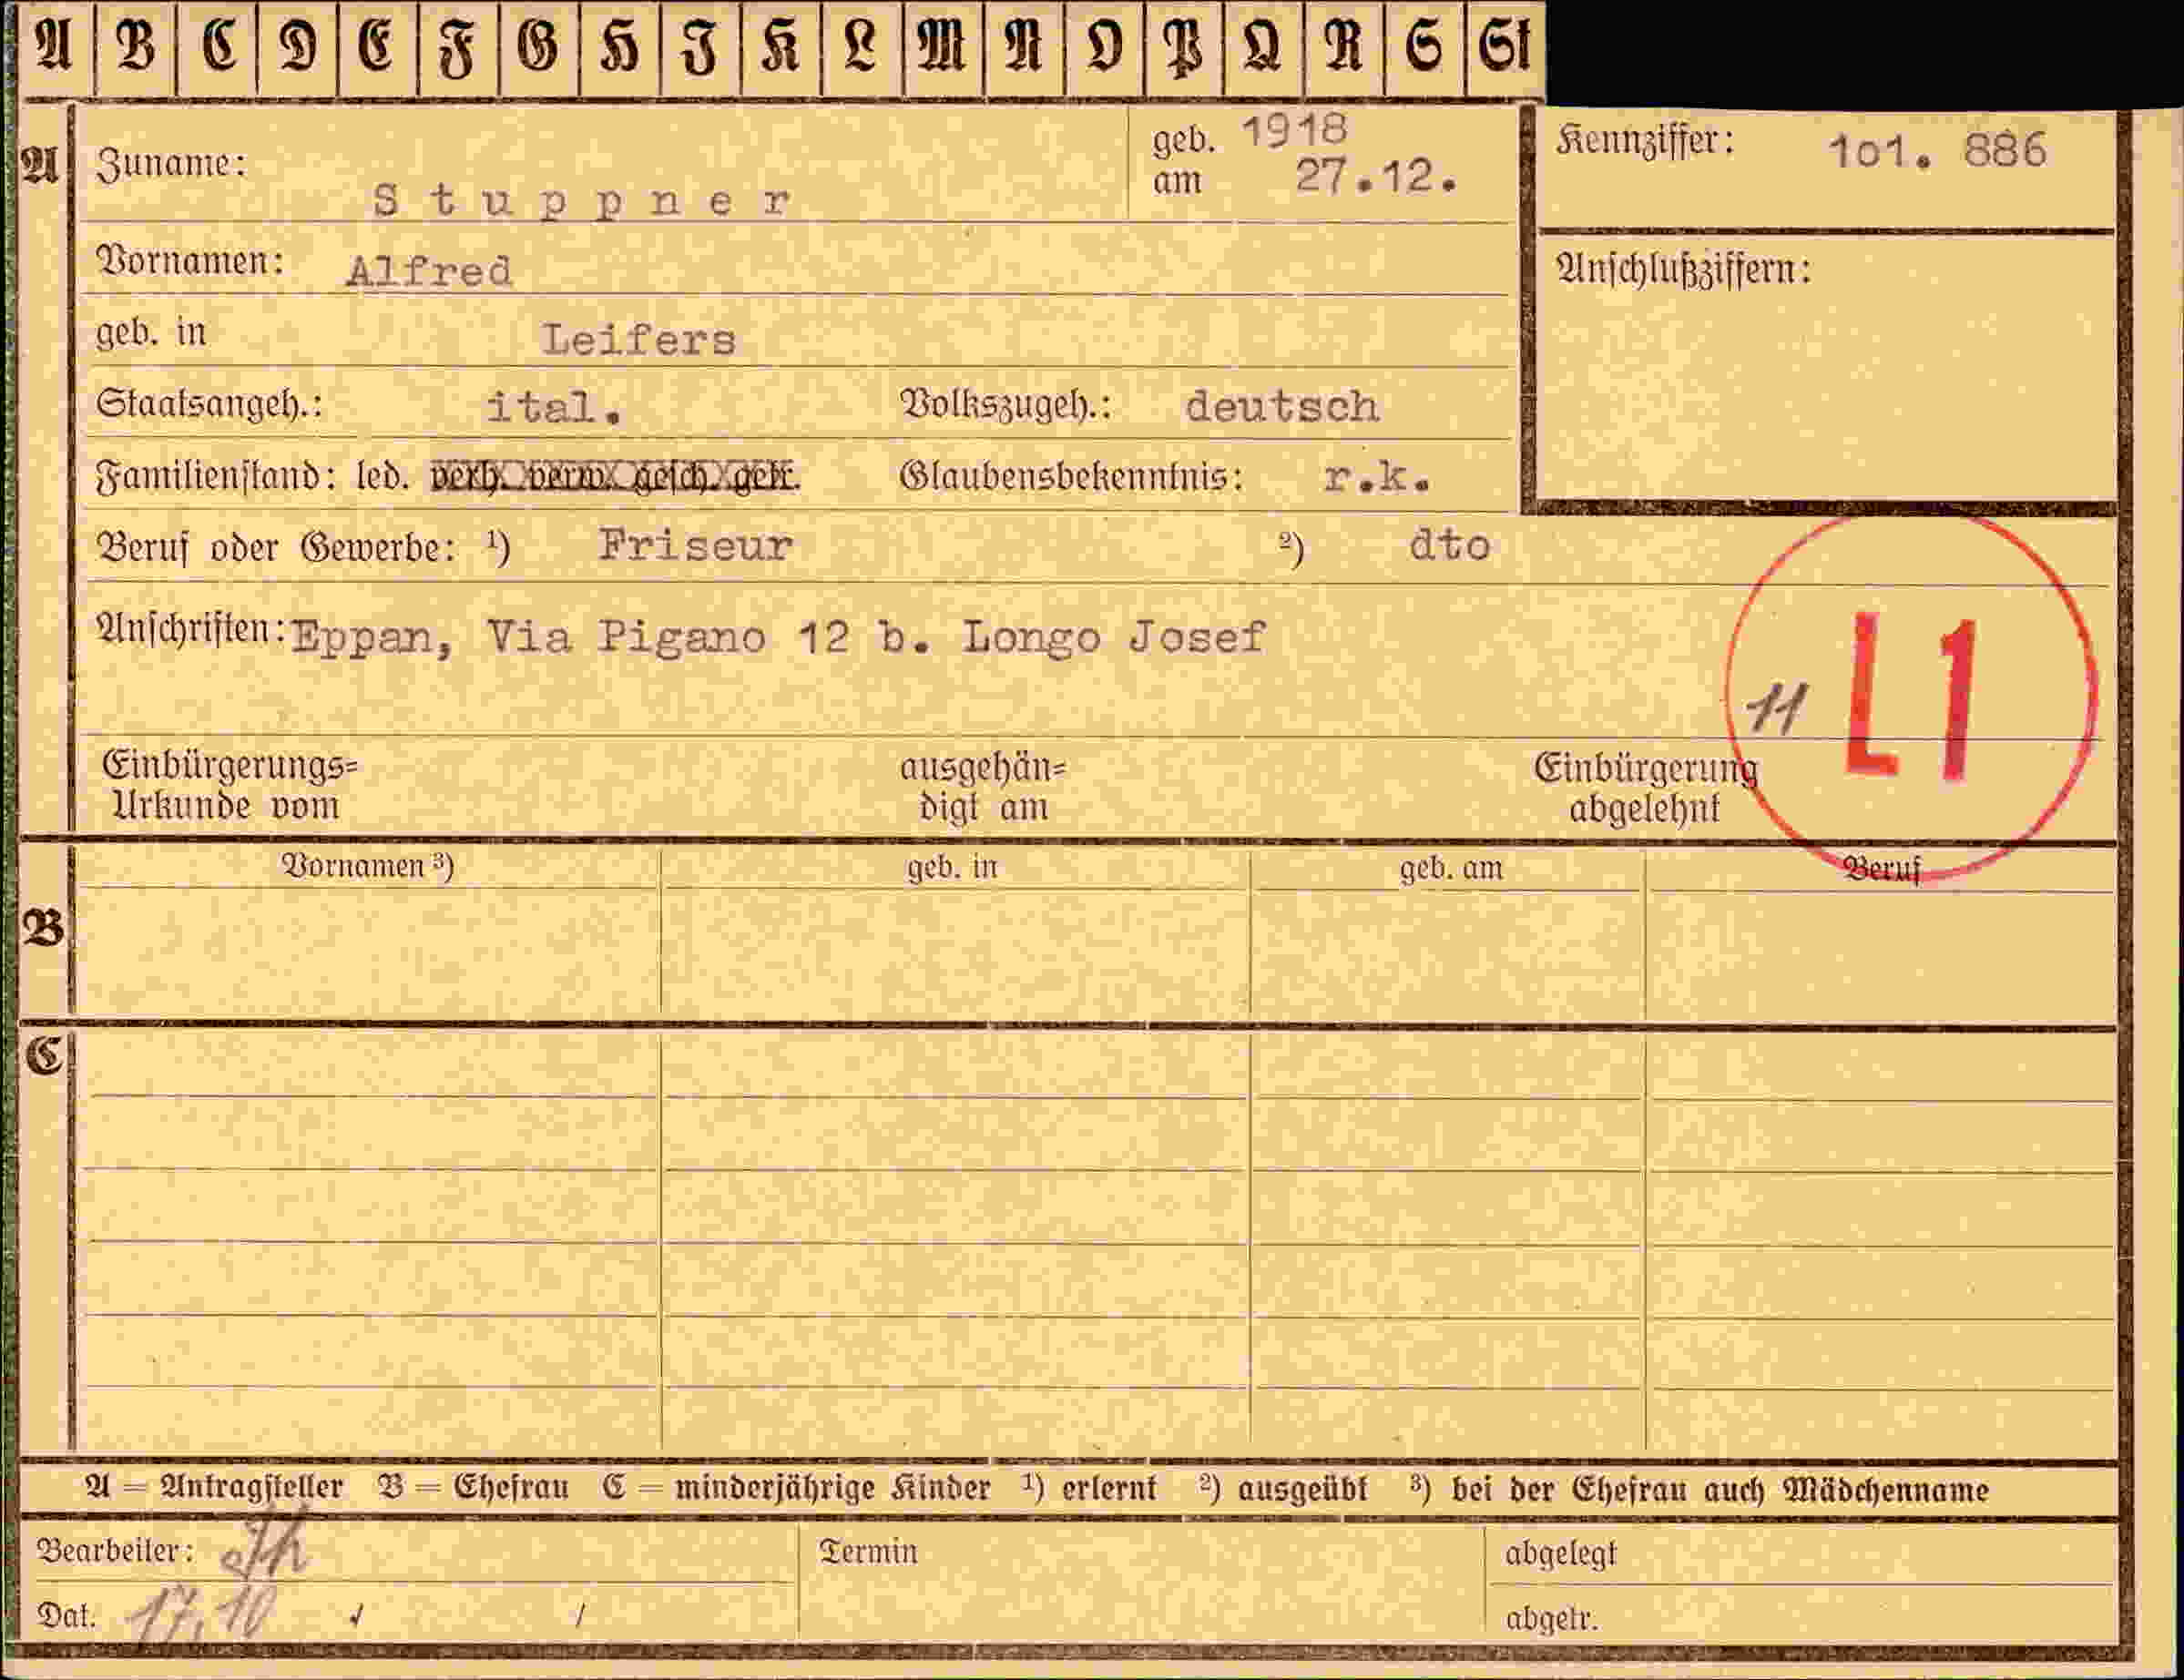 A B C D E F G H I K L M N O P Q R S St
A
Zuname: Stuppner
geb. am 1918 27.12.
Kennziffer: 101. 886
Vornamen: Alfred
Anschlußziffern:
geb. in Leifers
Staatsangeh.: ital. Volkszugeh.: deutsch
Familienstand: led. verh. verw. gesch. getr. Glaubensbekenntnis: r.k.
Beruf oder Gewerbe: ¹) Friseur ²) dto
Anschriften: Eppan, Via Pigano 12 b. Longo Josef
11 L1
Einbürgerungs= ausgehän= Einbürgerung
Urkunde vom digt am abgelehnt
B
Vornamen ³) geb. in geb. am Beruf
C
A = Antragsteller B = Ehefrau C = minderjährige Kinder ¹) erlernt ²) ausgeübt ³) bei der Ehefrau auch Mädchenname
Bearbeiter: Termin abgelegt
Dat. 17.10 / / abgetr.